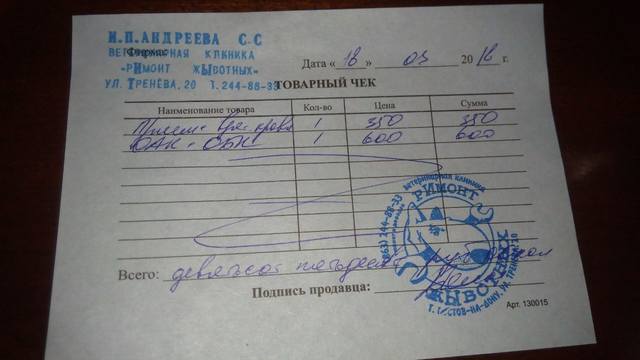 И.П.АНДРЕЕВА С.С
ВЕТЕРИНАРНАЯ КЛИНИКА
«РИМОНТ ЖЫВОТНЫХ»
УЛ. ТРЕНЁВА, 20 Т. 244-88-33
Дата « 18 » 03 20 18 г.
ТОВАРНЫЙ ЧЕК
Наименование товара Кол-во Цена Сумма
Прием + кровь 1 350 350
ОАК + ОБК 1 600 600
Всего: девятьсот пятьдесят руб
Подпись продавца:
ветеринарная клиника
РИМОНТ
ЖЫВОТНЫХ
(863) 244-88-33
Г. РОСТОВ-НА-ДОНУ, УЛ. ТРЕНЁВА 20
Арт. 130015